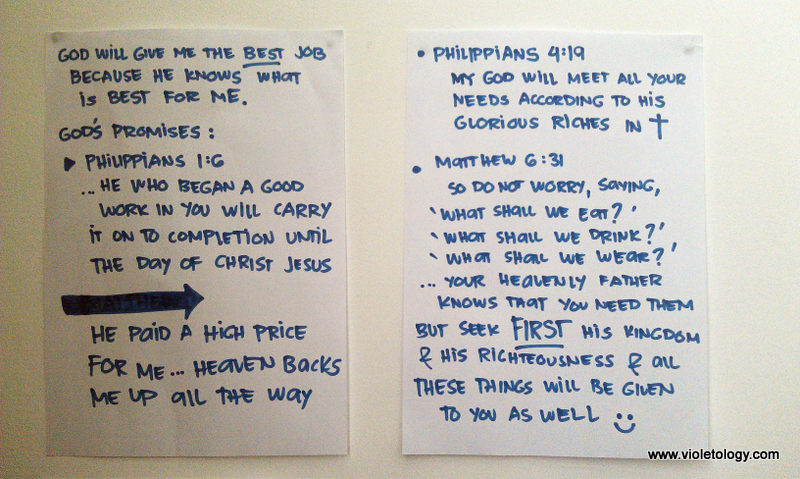 GOD WILL GIVE ME THE BEST JOB
BECAUSE HE KNOWS WHAT
IS BEST FOR ME.
GOD'S PROMISES :
▶ PHILIPPIANS 1:6
... HE WHO BEGAN A GOOD
WORK IN YOU WILL CARRY
IT ON TO COMPLETION UNTIL
THE DAY OF CHRIST JESUS
HE PAID A HIGH PRICE
FOR ME... HEAVEN BACKS
ME UP ALL THE WAY
• PHILIPPIANS 4:19
MY GOD WILL MEET ALL YOUR
NEEDS ACCORDING TO HIS
GLORIOUS RICHES IN ✝
• MATTHEW 6:31
SO DO NOT WORRY, SAYING,
'WHAT SHALL WE EAT?'
'WHAT SHALL WE DRINK?'
'WHAT SHALL WE WEAR?'
... YOUR HEAVENLY FATHER
KNOWS THAT YOU NEED THEM
BUT SEEK FIRST HIS KINGDOM
& HIS RIGHTEOUSNESS & ALL
THESE THINGS WILL BE GIVEN
TO YOU AS WELL :)
www.violetology.com